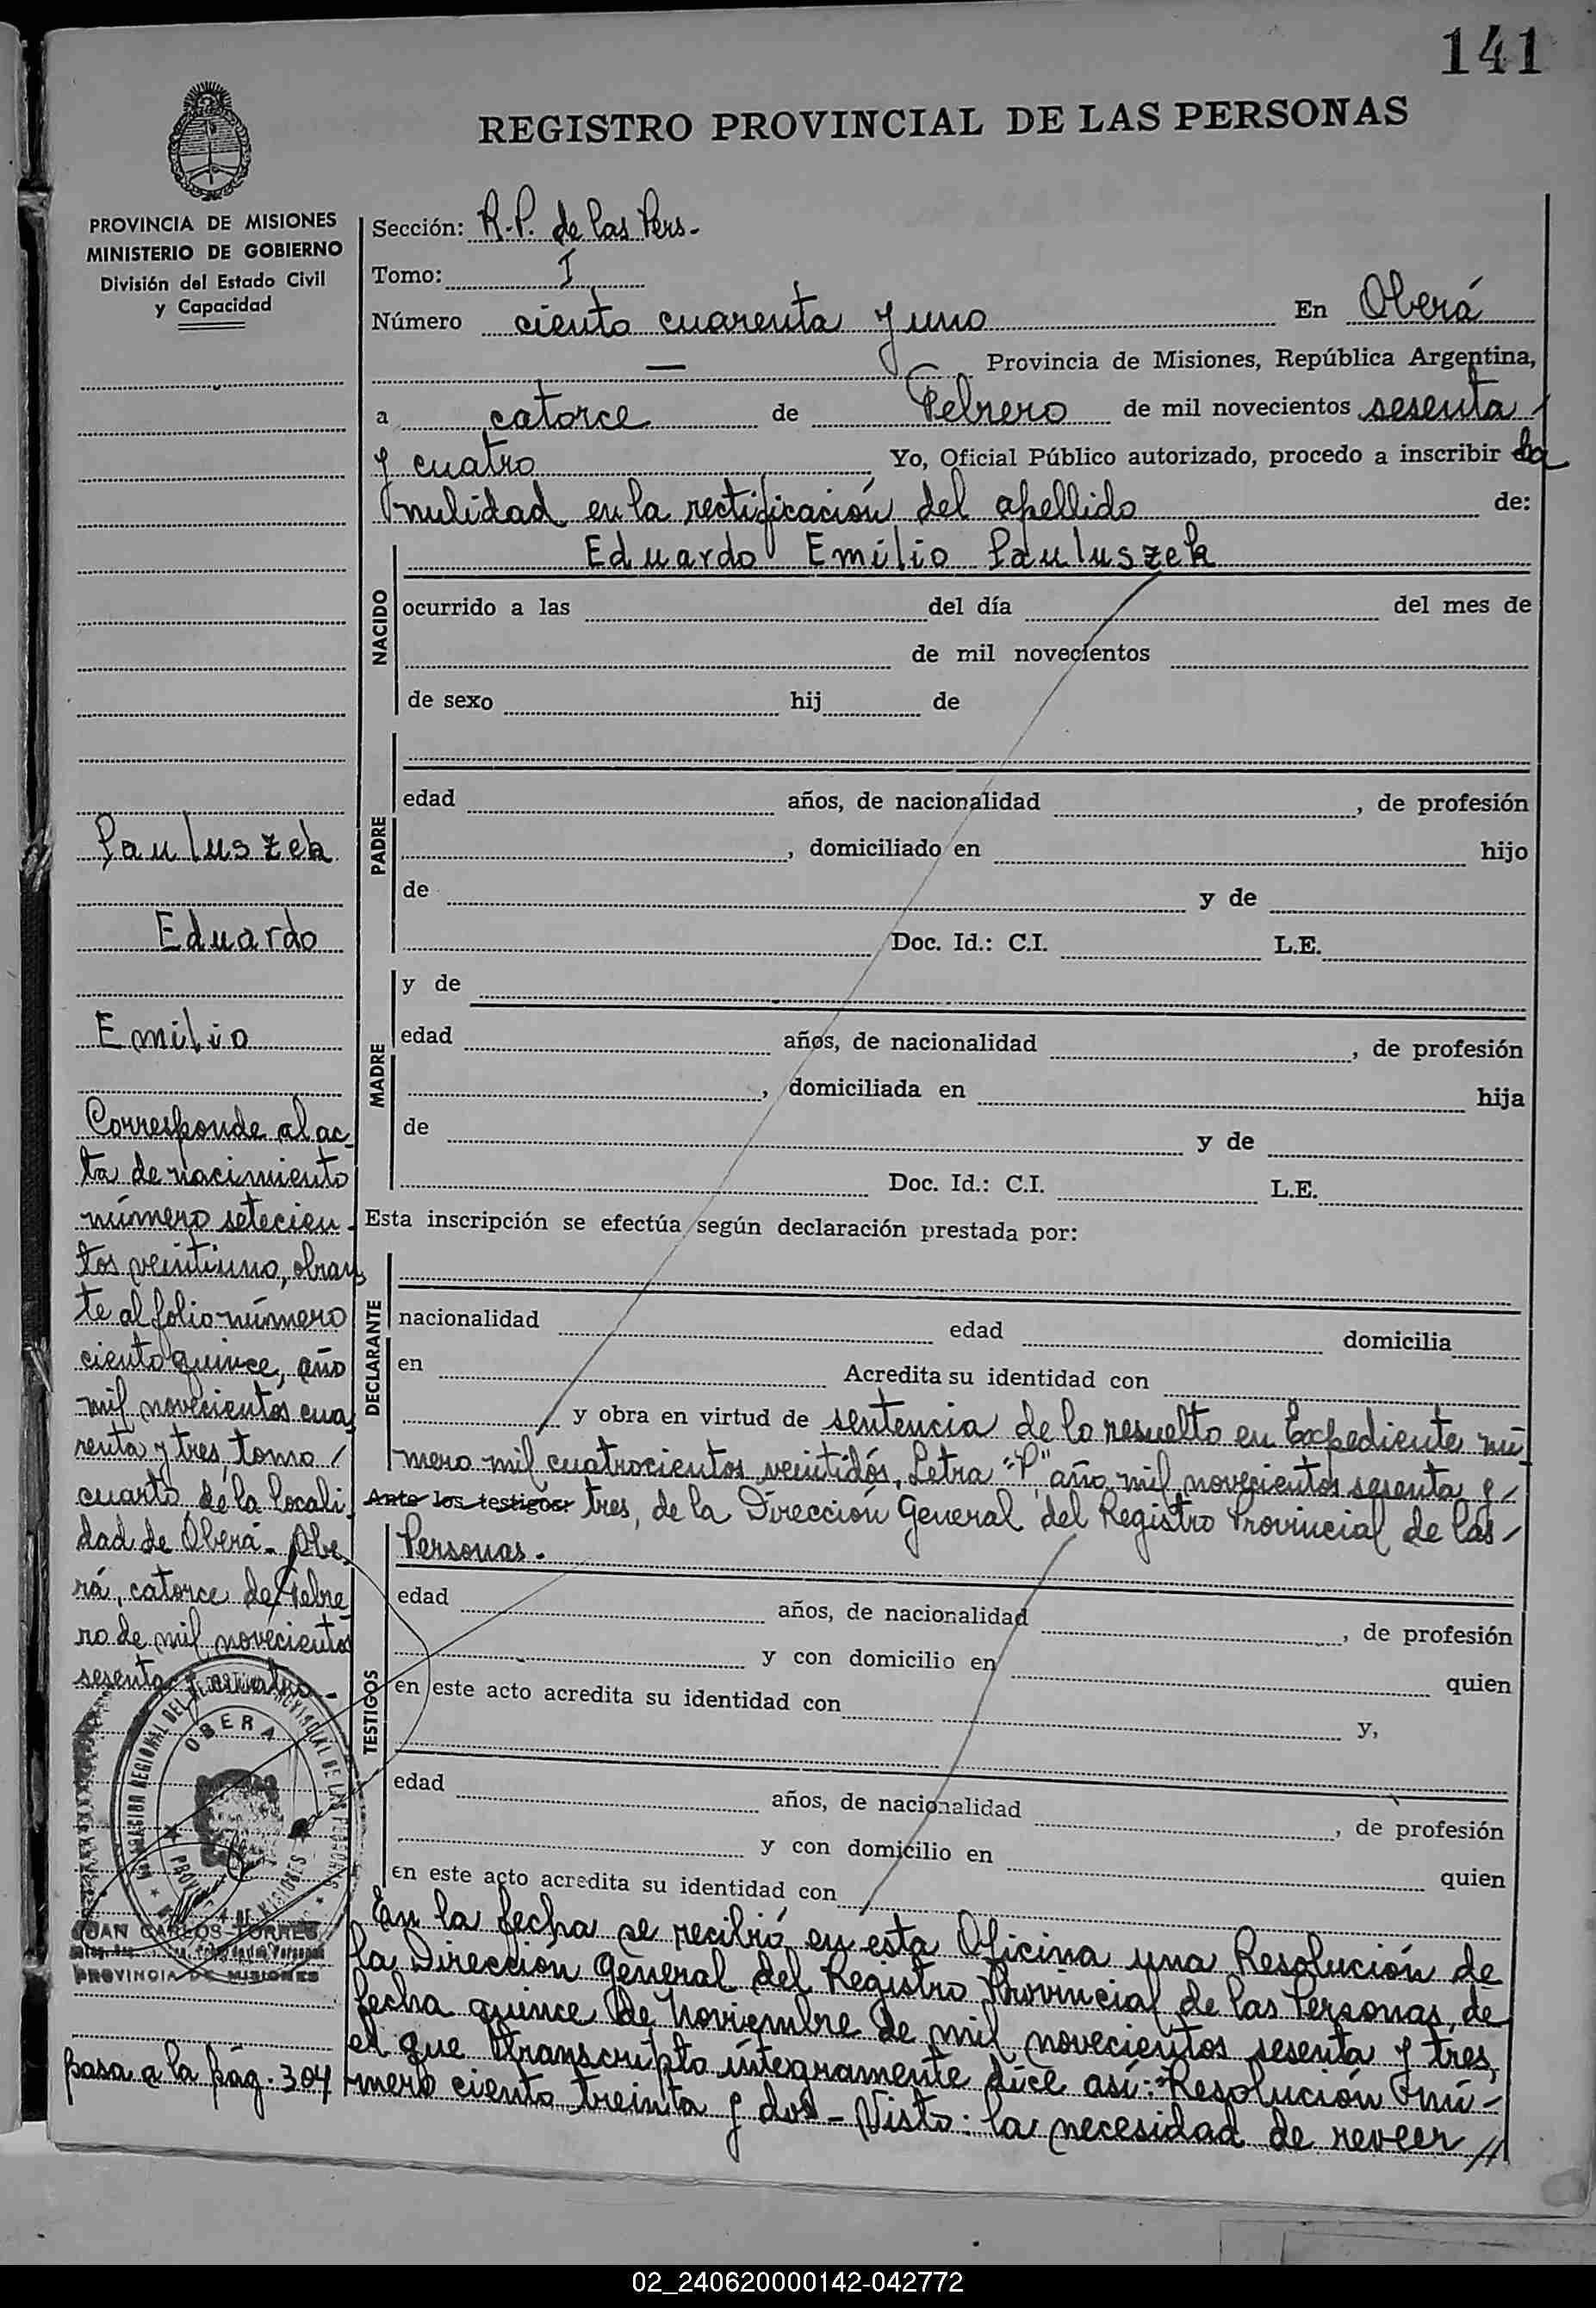 141
REGISTRO PROVINCIAL DE LAS PERSONAS
PROVINCIA DE MISIONES
MINISTERIO DE GOBIERNO
División del Estado Civil
y Capacidad
Sección: R.P. de las Pers.
Tomo: I
Número ciento cuarenta y uno En Oberá
— Provincia de Misiones, República Argentina,
a catorce de Febrero de mil novecientos sesenta /
y cuatro Yo, Oficial Público autorizado, procedo a inscribir la
nulidad en la rectificación del apellido de:
Eduardo Emilio Pauluszek
NACIDO
ocurrido a las del día del mes de
de mil novecientos
de sexo hij de
PADRE
edad años, de nacionalidad , de profesión
, domiciliado en hijo
de y de
Doc. Id.: C.I. L.E.
MADRE
y de
edad años, de nacionalidad , de profesión
, domiciliada en hija
de y de
Doc. Id.: C.I. L.E.
Esta inscripción se efectúa según declaración prestada por:
DECLARANTE
nacionalidad edad domicilia
en Acredita su identidad con
y obra en virtud de sentencia de lo resuelto en Expediente nú-
mero mil cuatrocientos veintidós, Letra "P" año mil novecientos sesenta y /
Ante los testigos: tres, de la Dirección General del Registro Provincial de las /
TESTIGOS
Personas.
edad años, de nacionalidad , de profesión
y con domicilio en quien
en este acto acredita su identidad con y,
edad años, de nacionalidad , de profesión
y con domicilio en quien
en este acto acredita su identidad con
En la fecha se recibió en esta Oficina una Resolución de
la Dirección General del Registro Provincial de las Personas, de
fecha quince de Noviembre de mil novecientos sesenta y tres,
el que transcripto íntegramente dice así: "Resolución nú-
mero ciento treinta y dos - Visto: la necesidad de reveer //
Pauluszek
Eduardo
Emilio
Corresponde al ac-
ta de nacimiento
número setecien-
tos veintiuno, obran
te al folio número
ciento quince, año
mil novecientos cua
renta y tres, tomo /
cuarto de la locali
dad de Oberá. Obe-
rá, catorce de Febre
ro de mil novecientos
sesenta y cuatro.
OBERA
JUAN CARLOS TORRES
PROVINCIA DE MISIONES
pasa a la pág. 304
02_240620000142-042772